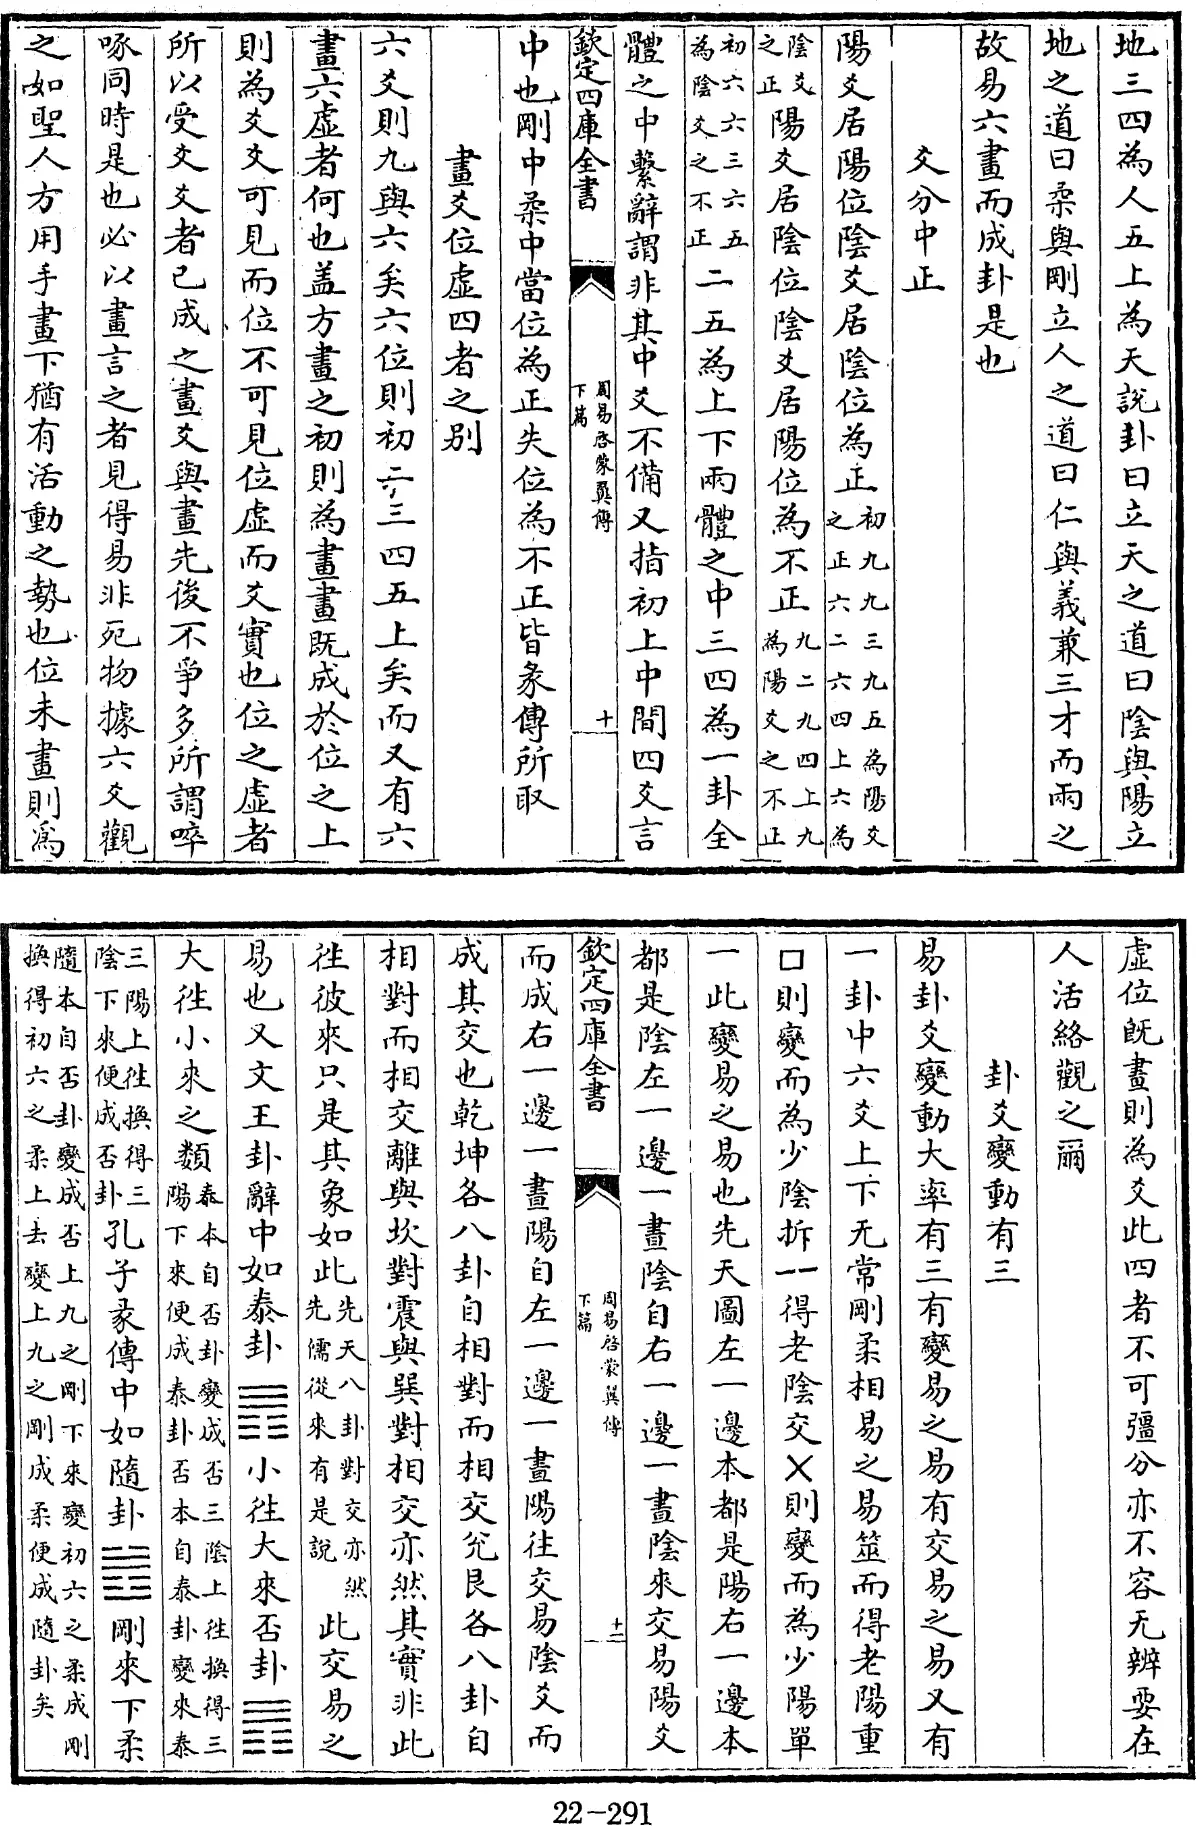 地三四為人五上為天說卦曰立天之道曰陰與陽立
地之道曰柔與剛立人之道曰仁與義兼三才而兩之
故易六畫而成卦是也
爻分中正
陽爻居陽位陰爻居陰位為正初九九三九五為陽爻之正六二六四上六為
陰爻之正陽爻居陰位陰爻居陽位為不正九二九四上九為陽爻之不正
初六六三六五為陰爻之不正二五為上下兩體之中三四為一卦全
體之中繫辭謂非其中爻不備又指初上中間四爻言
欽定四庫全書
周易啓蒙翼傳
下篇
十
中也剛中柔中當位為正失位為不正皆彖傳所取
畫爻位虛四者之别
六爻則九與六矣六位則初二三四五上矣而又有六
畫六虛者何也盖方畫之初則為畫畫既成於位之上
則為爻爻可見而位不可見位虛而爻實也位之虛者
所以受爻爻者已成之畫爻與畫先後不爭多所謂啐
啄同時是也必以畫言之者見得易非死物據六爻觀
之如聖人方用手畫下猶有活動之勢也位未畫則為
虛位既畫則為爻此四者不可彊分亦不容无辨要在
人活絡觀之爾
卦爻變動有三
易卦爻變動大率有三有變易之易有交易之易又有
一卦中六爻上下无常剛柔相易之易筮而得老陽重
囗則變而為少陰拆一一得老陰交乂則變而為少陽單
一此變易之易也先天圖左一邊本都是陽右一邊本
都是陰左一邊一畫陰自右一邊一畫陰來交易陽爻
欽定四庫全書
周易啓蒙翼傳
下篇
十一
而成右一邊一畫陽自左一邊一畫陽往交易陰爻而
成其交也乾坤各八卦自相對而相交兊艮各八卦自
相對而相交離與坎對震與巽對相交亦然其實非此
徃彼來只是其象如此先天八卦對交亦然先儒從來有是說此交易之
易也又文王卦辭中如泰卦䷊小徃大來否卦䷋
大徃小來之類泰本自否卦變成否三陰上徃換得三陽下來便成泰卦否本自泰卦變來泰
三陽上徃換得三陰下來便成否卦孔子彖傳中如隨卦䷐剛來下柔
隨本自否卦變成否上九之剛下來變初六之柔成剛換得初六之柔上去變上九之剛成柔便成隨卦矣
22-291